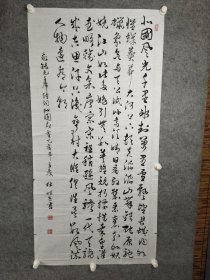 北國風光千里冰封萬里雪飄望長城内外
惟餘莽莽大河上下頓失滔滔山舞銀蛇原馳
蠟象欲與天公試比高須晴日看紅裝素裹分外妖
嬈江山如此多嬌引無數英雄競折腰惜秦皇漢
武略輸文采唐宗宋祖稍遜風騷一代天驕
成吉思汗只識彎弓射大雕俱往矣數風流
人物還看今朝
毛主席詩詞沁園春雪